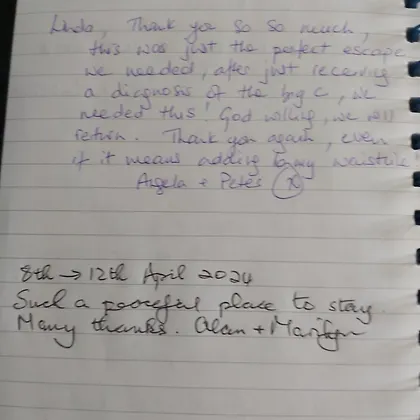 Linda, Thank you so so much,
this was just the perfect escape
we needed, after just receiving
a diagnosis of the big C, we
needed this! God willing, we will
return. Thank you again, even
if it means adding to my waistline
Angela + Peter x
8th → 12th April 2024
Such a peaceful place to stay.
Many thanks. Alan + Marilyn